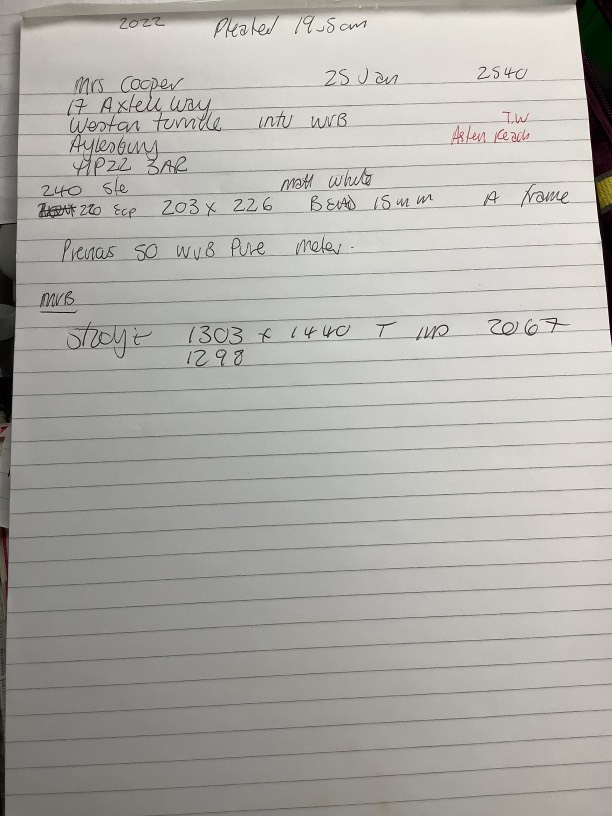 2022 Pleated 19.5cm
Mrs Cooper 25 Jan 2540
17 Axtell way
Weston turville into WVB T.W
Aylesbury Asten Reach
HP22 3AR
240 Ste matt white
220 Ecp 203 x 226 BEAD 15mm A frame
50 WVB Pure
MVB
Study:- 1303 x 1440 T 2067
1298